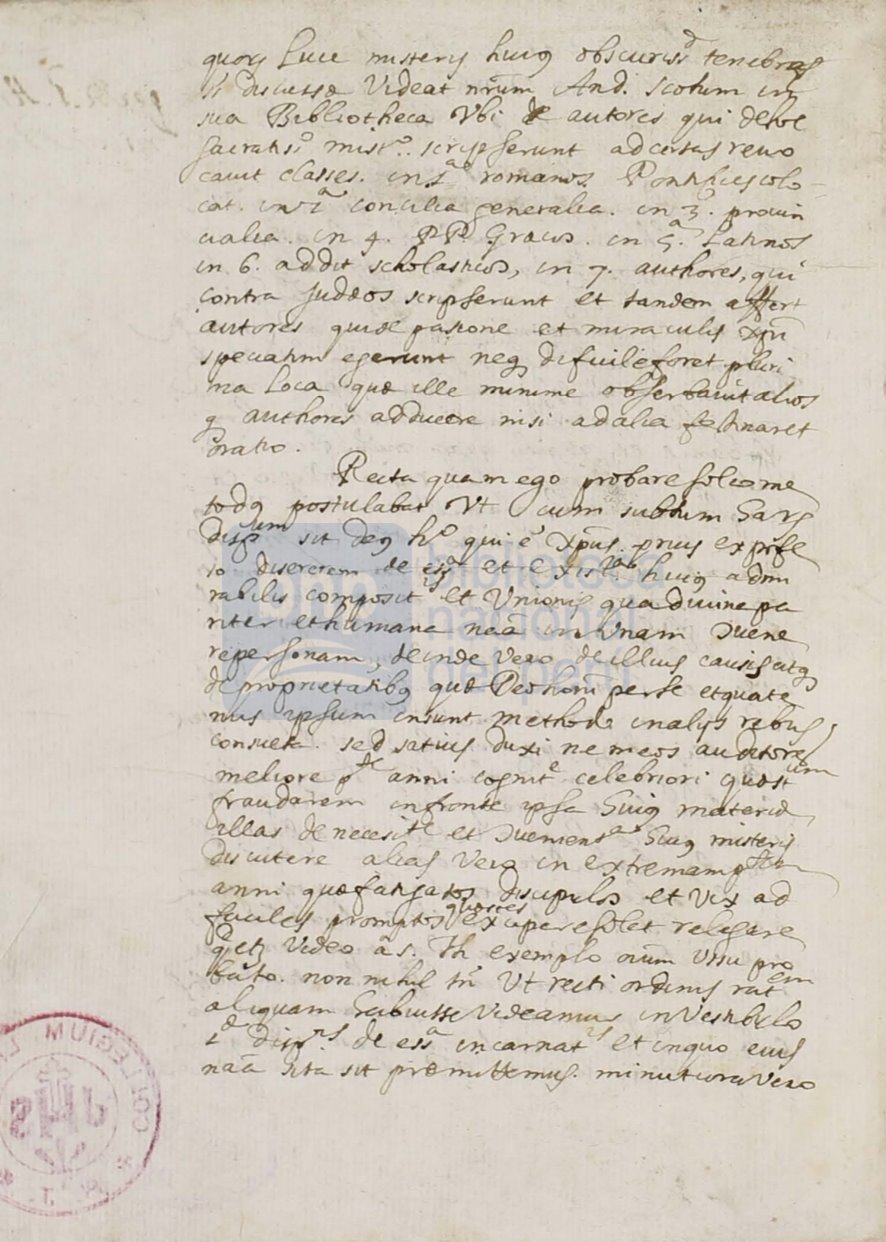 quorũ Luce misterij huiꝰ obscuriss.ᵉ tenebræ
si discussæ Videat nr̃um And. Scotum in
sua Bibliotheca Vbi autores qui de hoc
sacratis.º mist.º scripserunt ad certas revo
cavit classes. in 1.ª romanos Pontifices colo
cat. in 2.ª concilia generalia. in 3.ª provin
cialia. in 4. PP. Græcos. in 5.ª Latinos
in 6. addit scholasticos, in 7. authores, qui
contra Judæos scripserunt et tandem affert
autores qui de pasione et miraculis xp̃i
speciatim egerunt neq₃ dificile foret pluri
ma Loca quæ ille minime obserbavit alios
q₃ authores adducere nisi ad alia festinaret
oratio.
Recta quam ego probare soleo me
todꝰ postulabat Vt cum subtum harũ
disp.ᵘᵐ sit deꝰ hº qui ẽ Xp̃us. prius ex profe
so disererem de ess.ª et existᵃ huiꝰ admi
rabilis compositⁱˢ et Unionis qua divina pa
riter et humana nãa in Vnam Ivene
re personam, deinde Vero de illius causis atq₃
de proprietatibꝰ quæ perse et quate
nus ipsum insunt methodo in alijs rebus
consueta. sed satius duxi ne meos auditores
meliore pᵗᵉ anni cognitᵉ celebriori quæstᵘᵐ
fraudarem in fronte ipsa huiꝰ materiæ
illas de necesitᵉ et huiꝰ misterij
discutere alias Vero in extremam pᵗᵉᵐ
anni quæ fatigatos discipulos et Vix ad
faciles promptos quæstes excipere solet relegare
Video ãs. Th exemplo oĩum Vsu pro
bato. non nihil tñ Vt recti ordinis ratᵉᵐ
aliquam habuisse Videamur in Vestibulo
1.ᵉ dispᵗⁿⁱˢ de ess.ª incarnatⁱˢ et in quo eius
nãa sita sit præmittemus. minutiora Vero
biblioteca
nacional
del perú
bnp
COLLEGIUM
JHS